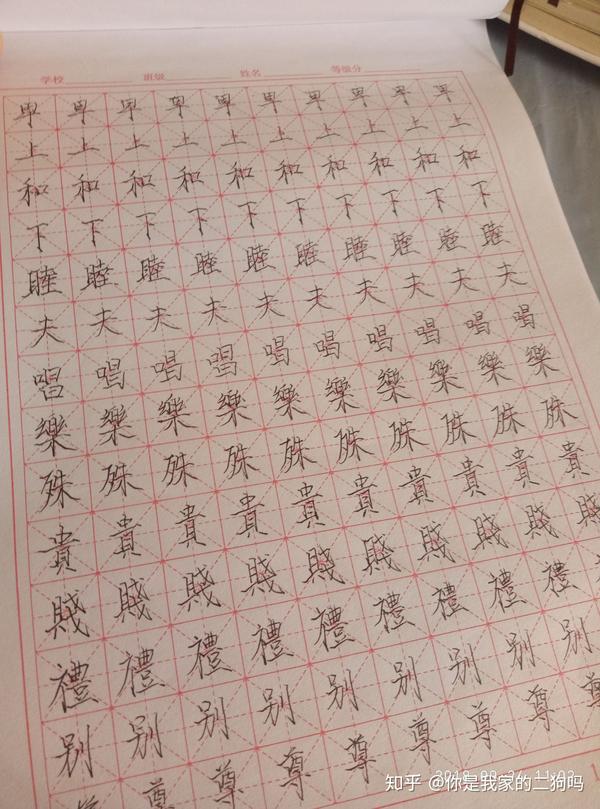 学校 班级 姓名 等级分
卑 卑 卑 卑 卑 卑 卑 卑 卑 卑
上 上 上 上 上 上 上 上 上 上
和 和 和 和 和 和 和 和 和 和
下 下 下 下 下 下 下 下 下 下
睦 睦 睦 睦 睦 睦 睦 睦 睦 睦
夫 夫 夫 夫 夫 夫 夫 夫 夫 夫
唱 唱 唱 唱 唱 唱 唱 唱 唱 唱
樂 樂 樂 樂 樂 樂 樂 樂 樂 樂
殊 殊 殊 殊 殊 殊 殊 殊 殊 殊
貴 貴 貴 貴 貴 貴 貴 貴 貴 貴
賤 賤 賤 賤 賤 賤 賤 賤 賤 賤
禮 禮 禮 禮 禮 禮 禮 禮 禮
别 别 别 别 别 别 别 别 别
尊 尊 尊 尊 尊 尊 尊 尊
知乎 @你是我家的二狗吗